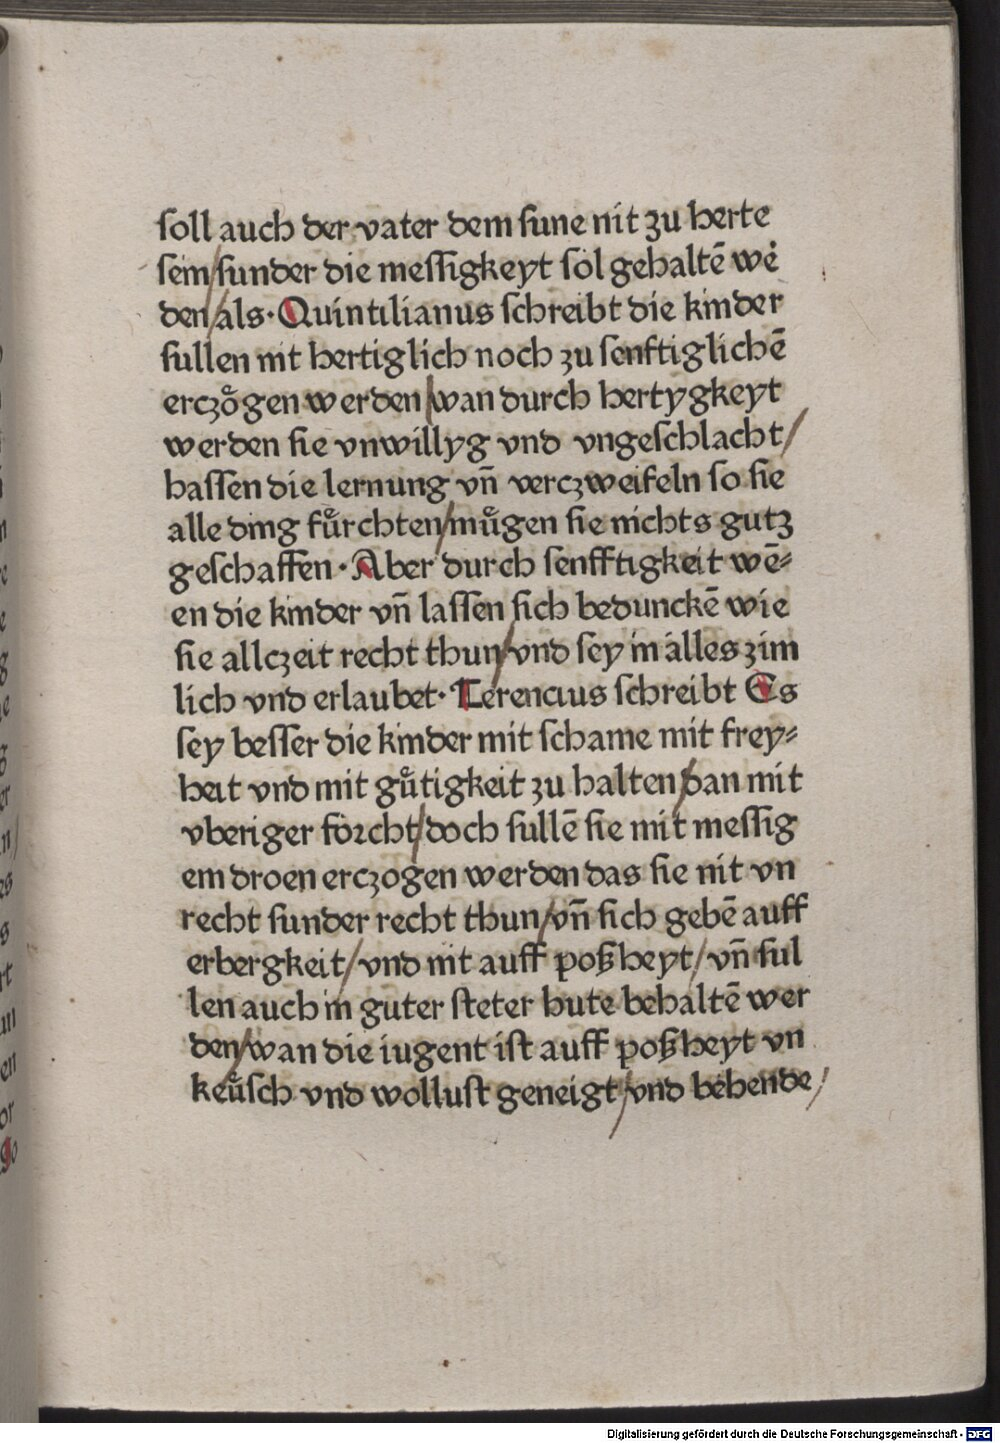 soll auch der vater dem sune nit zu herte
sein/sunder die messigkeyt sol gehaltē wė
den/als·Quintilianus schreibt die kinder
sullen nit hertiglich noch zu senftiglichē
erczogͤen werden/wan durch hertygkeyt
werden sie vnwillyg vnd vngeschlacht/
hassen die lernung vn̄ verczweifeln so sie
alle ding fuͤrchten/muͤgen sie nichts gutz
geschaffen·Aber durch senfftigkeit wē⸗
en die kinder vn̄ lassen sich bedunckē wie
sie allczeit recht thun/vnd sey in alles zim
lich vnd erlaubet·Terencius schreibt Es
sey besser die kinder mit schame mit frey⸗
heit vnd mit guͤtigkeit zu halten/dan mit
vberiger forcht/doch sullē sie mit messig
em droen erczogen werden das sie nit vn
recht sunder recht thun/vn̄ sich gebē auff
erbergkeit/vnd nit auff poßheyt/vn̄ sul
len auch in guter steter hute behaltē wer
den/wan die iugent ist auff poßheyt vn
keuͤsch vnd wollust geneigt/vnd behende/
Digitalisierung gefördert durch die Deutsche Forschungsgemeinschaft - DFG